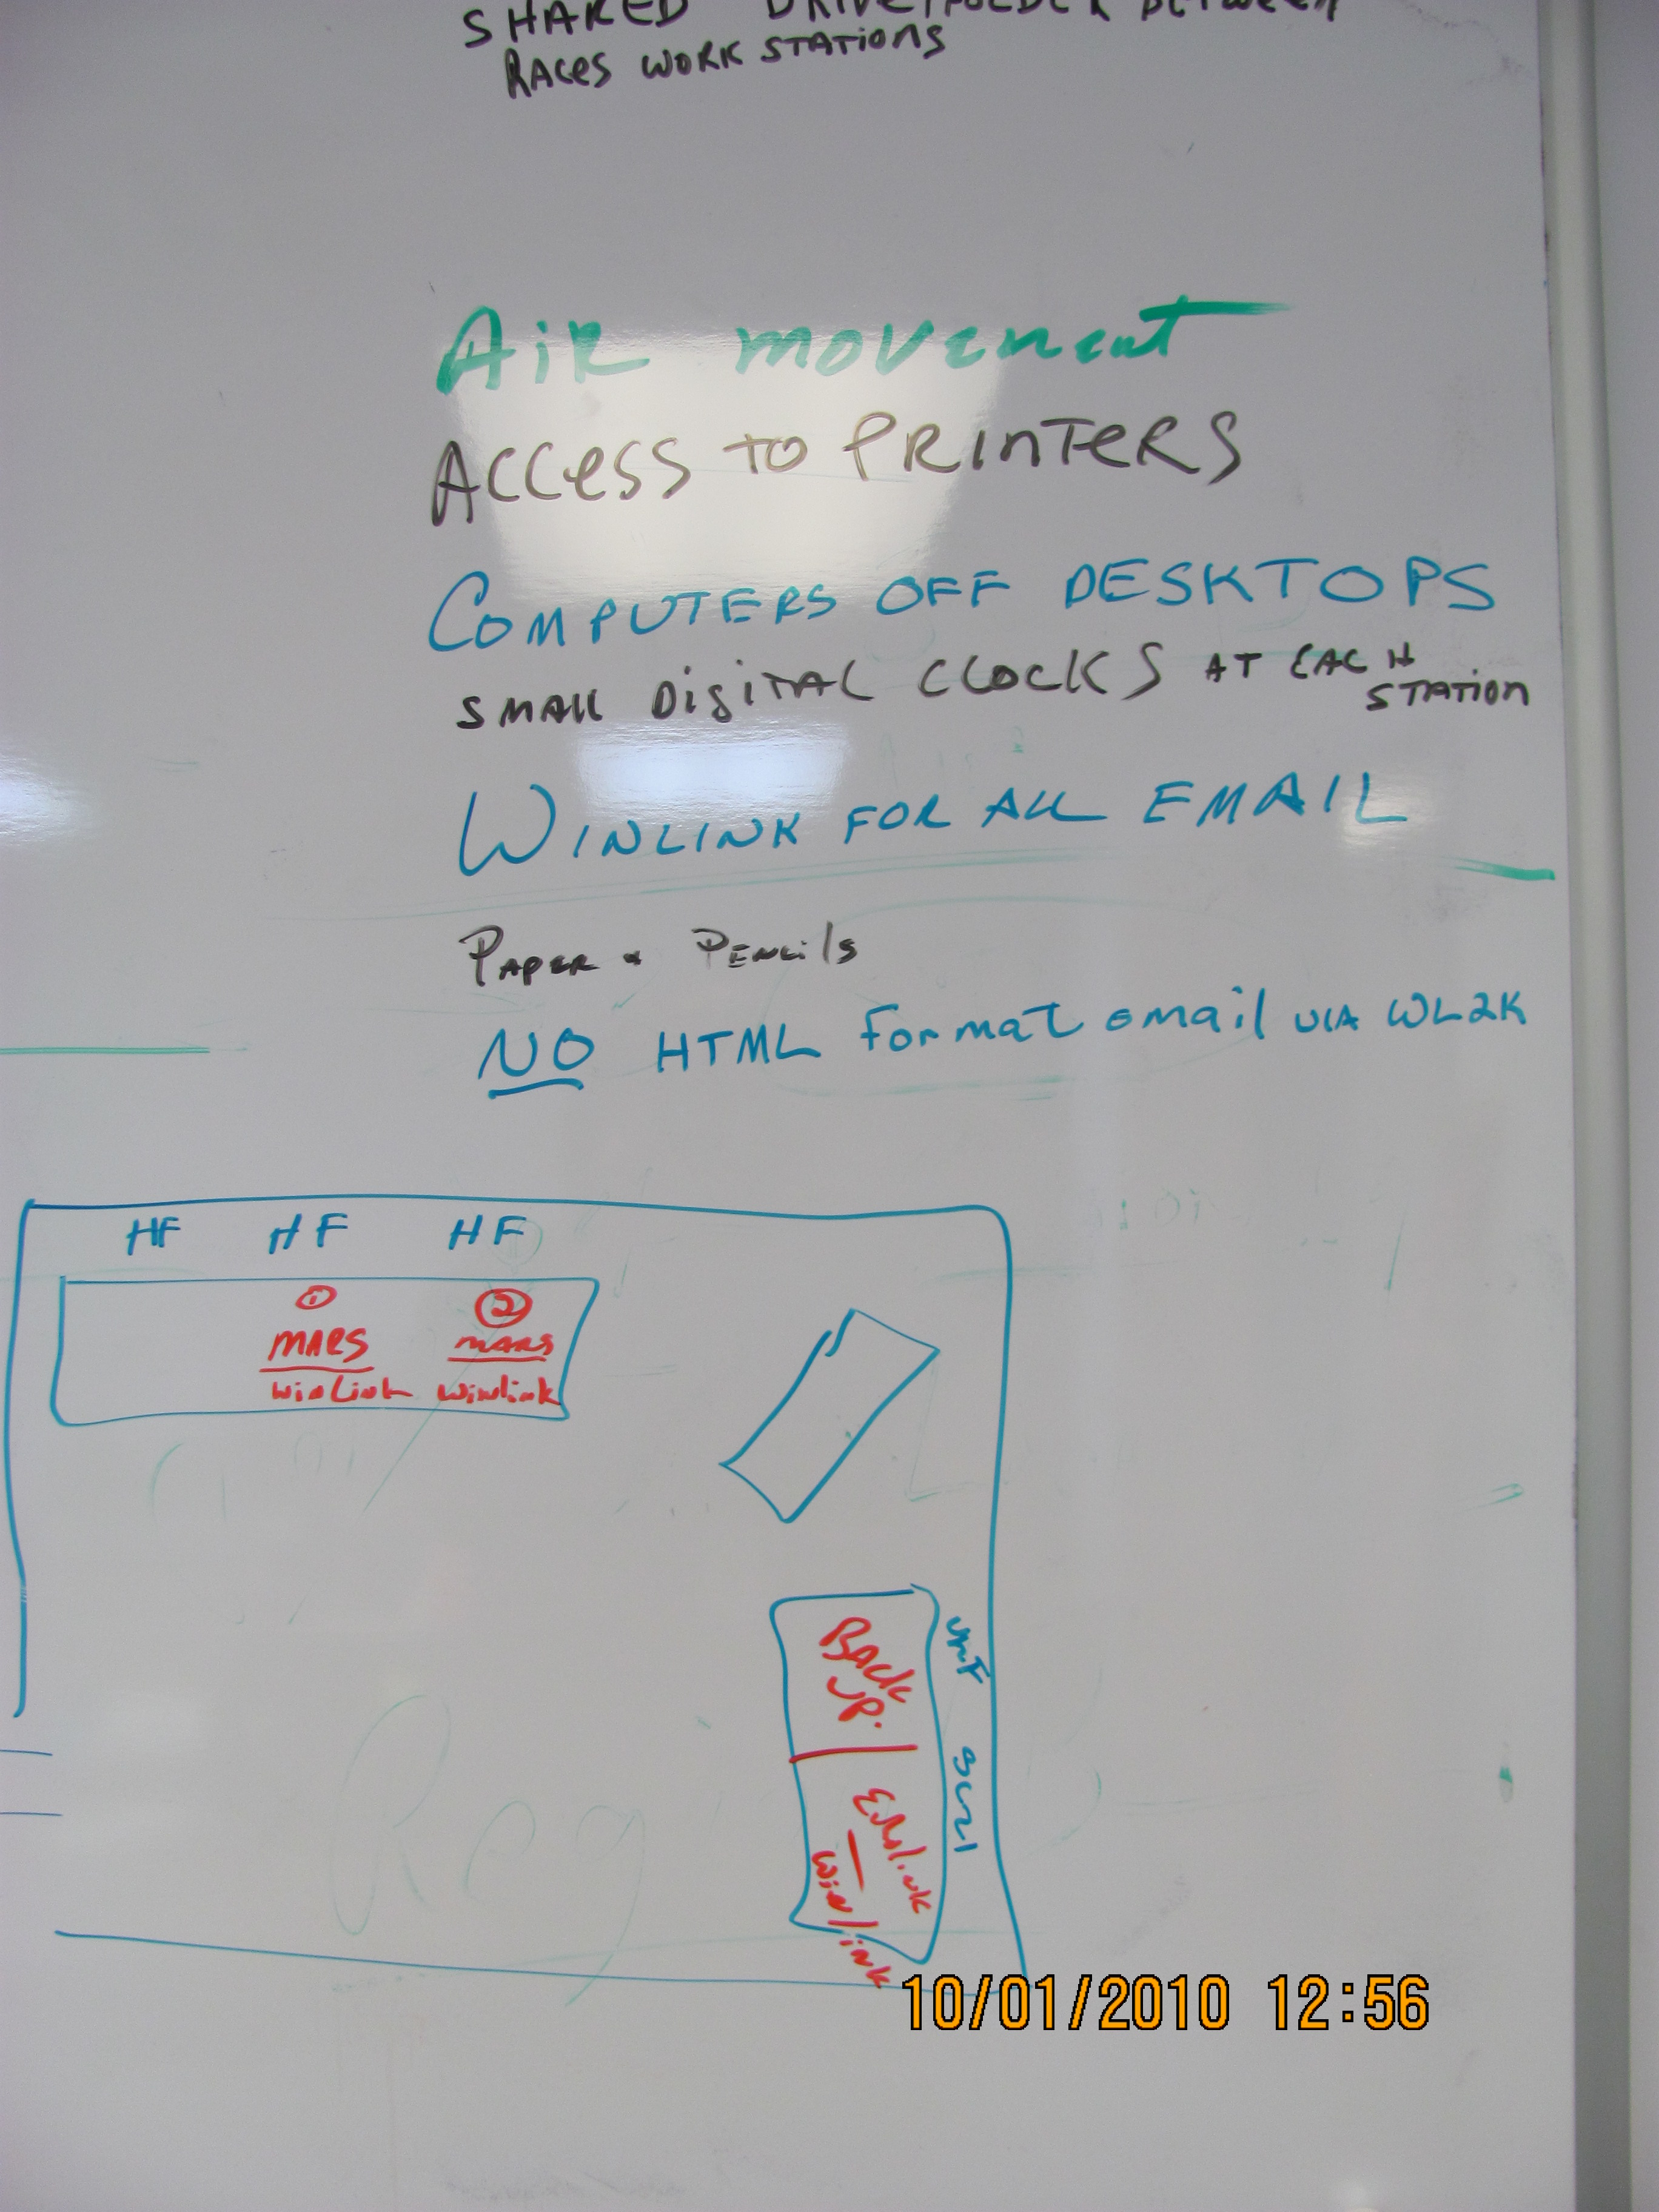 SHARED DRIVE/FOLDER BETWEEN
RACES WORK STATIONS
AIR movement
ACCESS TO PRINTERS
COMPUTERS OFF DESKTOPS
SMALL DIGITAL CLOCKS AT EACH
STATION
WINLINK FOR ALL EMAIL
PAPER & PENCILS
NO HTML Format email VIA WL2K
HF HF HF
1 2
MARS MARS
WinLink Winlink
BACK
UP.
VHF
Winlink
10/01/2010 12:56